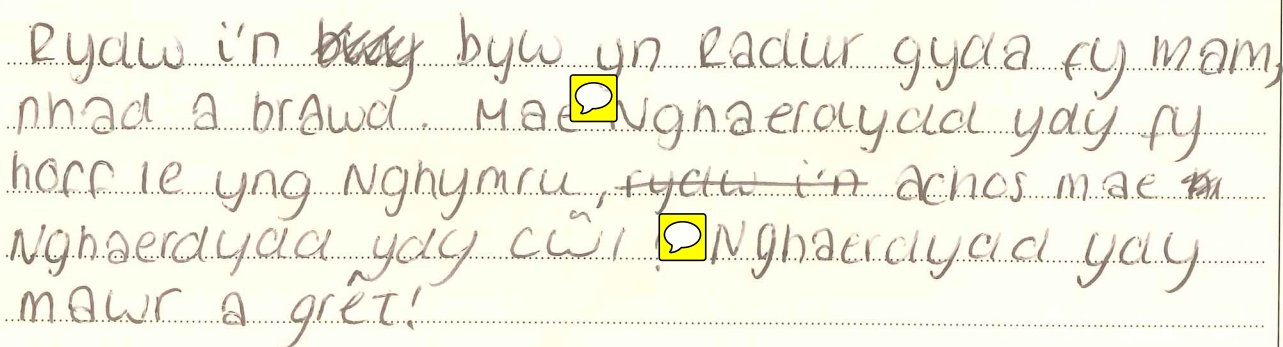 Rydw i'n byw yn Radur gyda fy mam,
nhad a brawd. Mae Nghaerdydd ydy fy
hoff le yng Nghymru, rydw i'n achos mae
Nghaerdydd ydy cŵl! Nghaerdydd ydy
mawr a grêt!